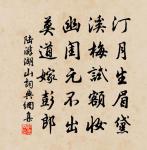 汀月生眉黛
溪梅試額妝
幽閨元不出
莫道嫁彭郎
陸游湖山詞典網集